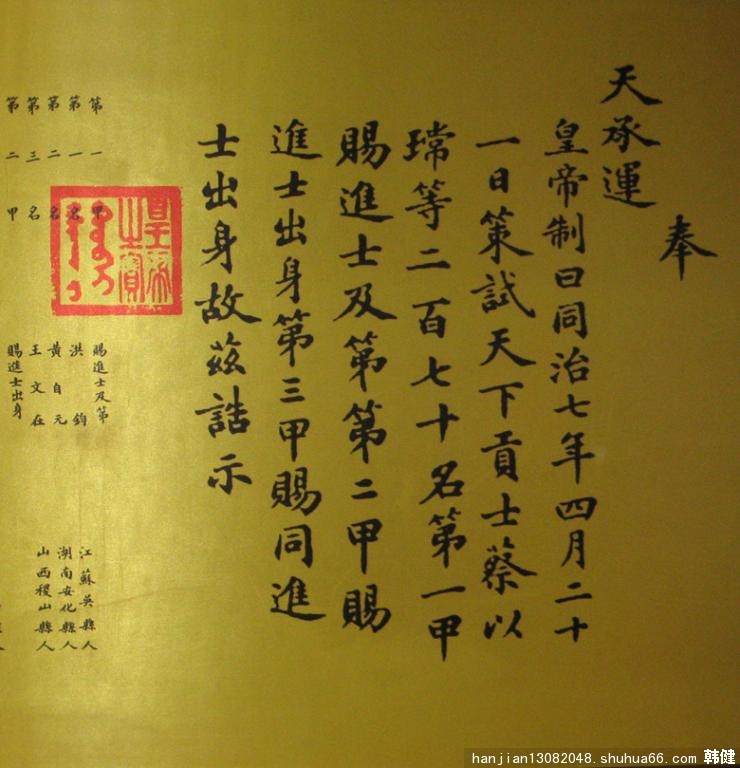 奉
天承運
皇帝制曰同治七年四月二十
一日策試天下貢士蔡以
瑺等二百七十名第一甲
賜進士及第第二甲賜
進士出身第三甲賜同進
士出身故茲誥示
皇帝之寶
第一甲 賜進士及第
第一名 洪鈞 江蘇吳縣人
第二名 黃自元 湖南安化縣人
第三名 王文在 山西稷山縣人
第二甲 賜進士出身
hanjian13082048.shuhua66.com 韩健